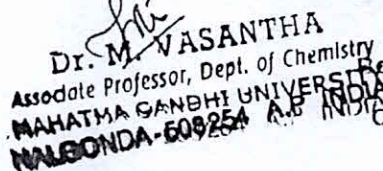 Dr. M. VASANTHA
Associate Professor, Dept. of Chemistry
MAHATMA GANDHI UNIVERSITY
NALGONDA-508254 A.P INDIA